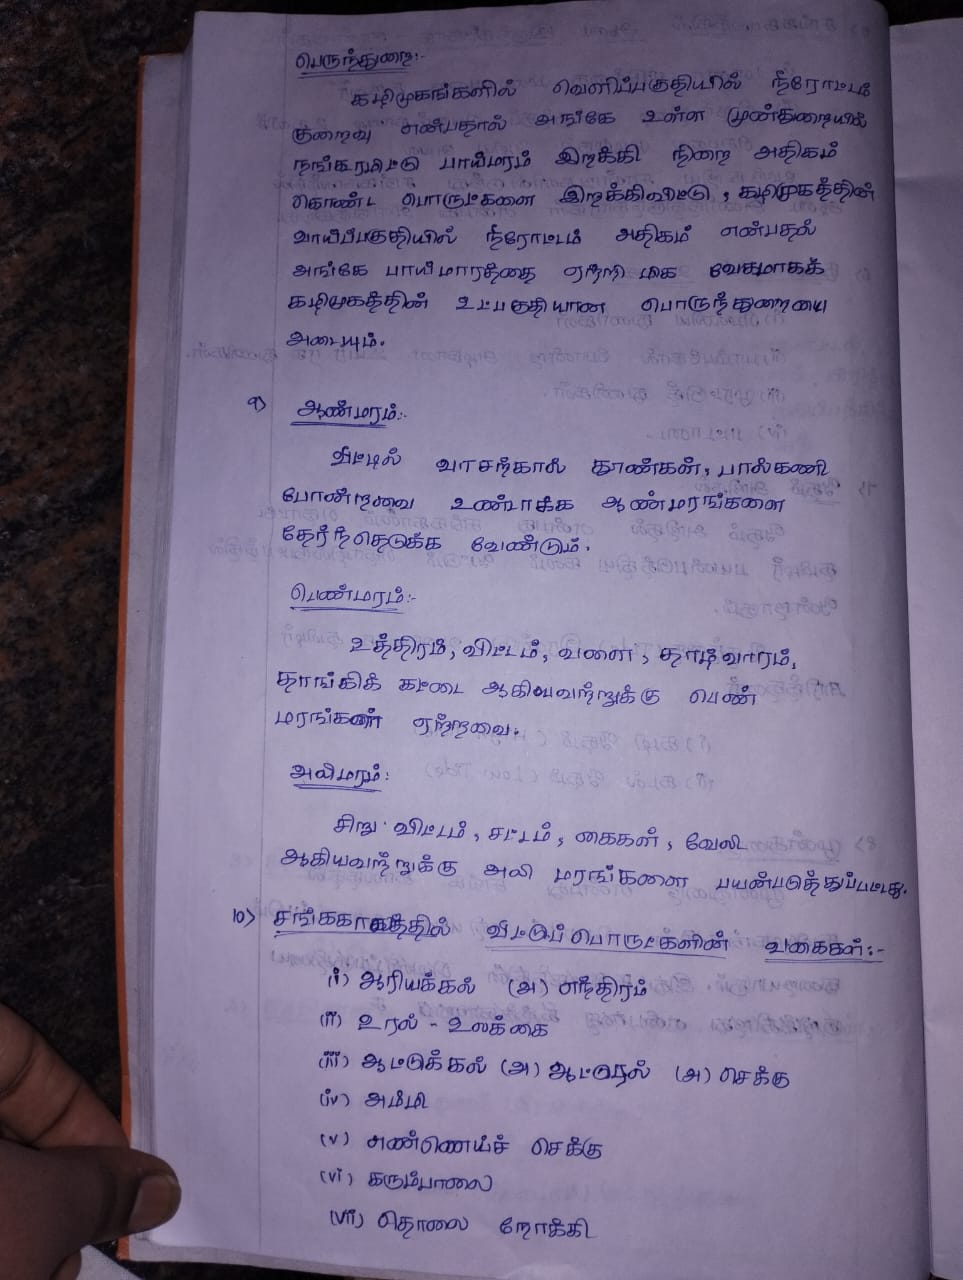 பெருந்துறை:-
கழிமுகங்களில் வெளிப்பகுதியில் நீரோட்டம்
குறைவு என்பதால் அங்கே உள்ள முன்துறையில்
நங்கூரமிட்டு பாய்மரம் இறக்கி நிறை அதிகம்
கொண்ட பொருட்களை இறக்கிவிட்டு, கழிமுகத்தின்
வாய்ப்பகுதியில் நீரோட்டம் அதிகம் என்பதல்
அங்கே பாய்மாரத்தை ஏற்றி மிக வேகமாகக்
கழிமுகத்தின் உட்பகுதியான பொருந்துறையை
அடையும்.
9) ஆண்மரம்:-
வீட்டில் வாசற்கால் தூண்கள், பால்கணி
போன்றவை உண்டாக்க ஆண்மரங்களை
தேர்ந்தெடுக்க வேண்டும்.
பெண்மரம்:-
உத்திரம், விட்டம், வளை, தாழ்வாரம்,
தாங்கிக் கட்டை ஆகியவற்றுக்கு பெண்
மரங்கள் ஏற்றவை.
அலிமரம்:
சிறு விட்டம், சட்டம், கைகள், வேலி
ஆகியவற்றுக்கு அலி மரங்களை பயன்படுத்துப்பட்டது.
10) சங்ககாலத்தில் வீட்டுப் பொருட்களின் வகைகள்:-
(i) ஆரியக்கல் (அ) எந்திரம்
(ii) உரல் - உலக்கை
(iii) ஆட்டுக்கல் (அ) ஆட்டுரல் (அ) செக்கு
(iv) அம்மி
(v) எண்ணெய்ச் செக்கு
(vi) கரும்பாலை
(vii) தொலை நோக்கி